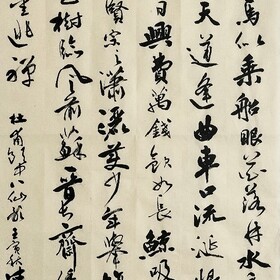 馬似乘船眼花落井水
天道逢曲車口流涎恨
日興費萬錢飲如長鯨吸
賢宗之瀟灑美少年舉
樹臨風前蘇晉長齋
逃禪 杜甫飲中八仙歌